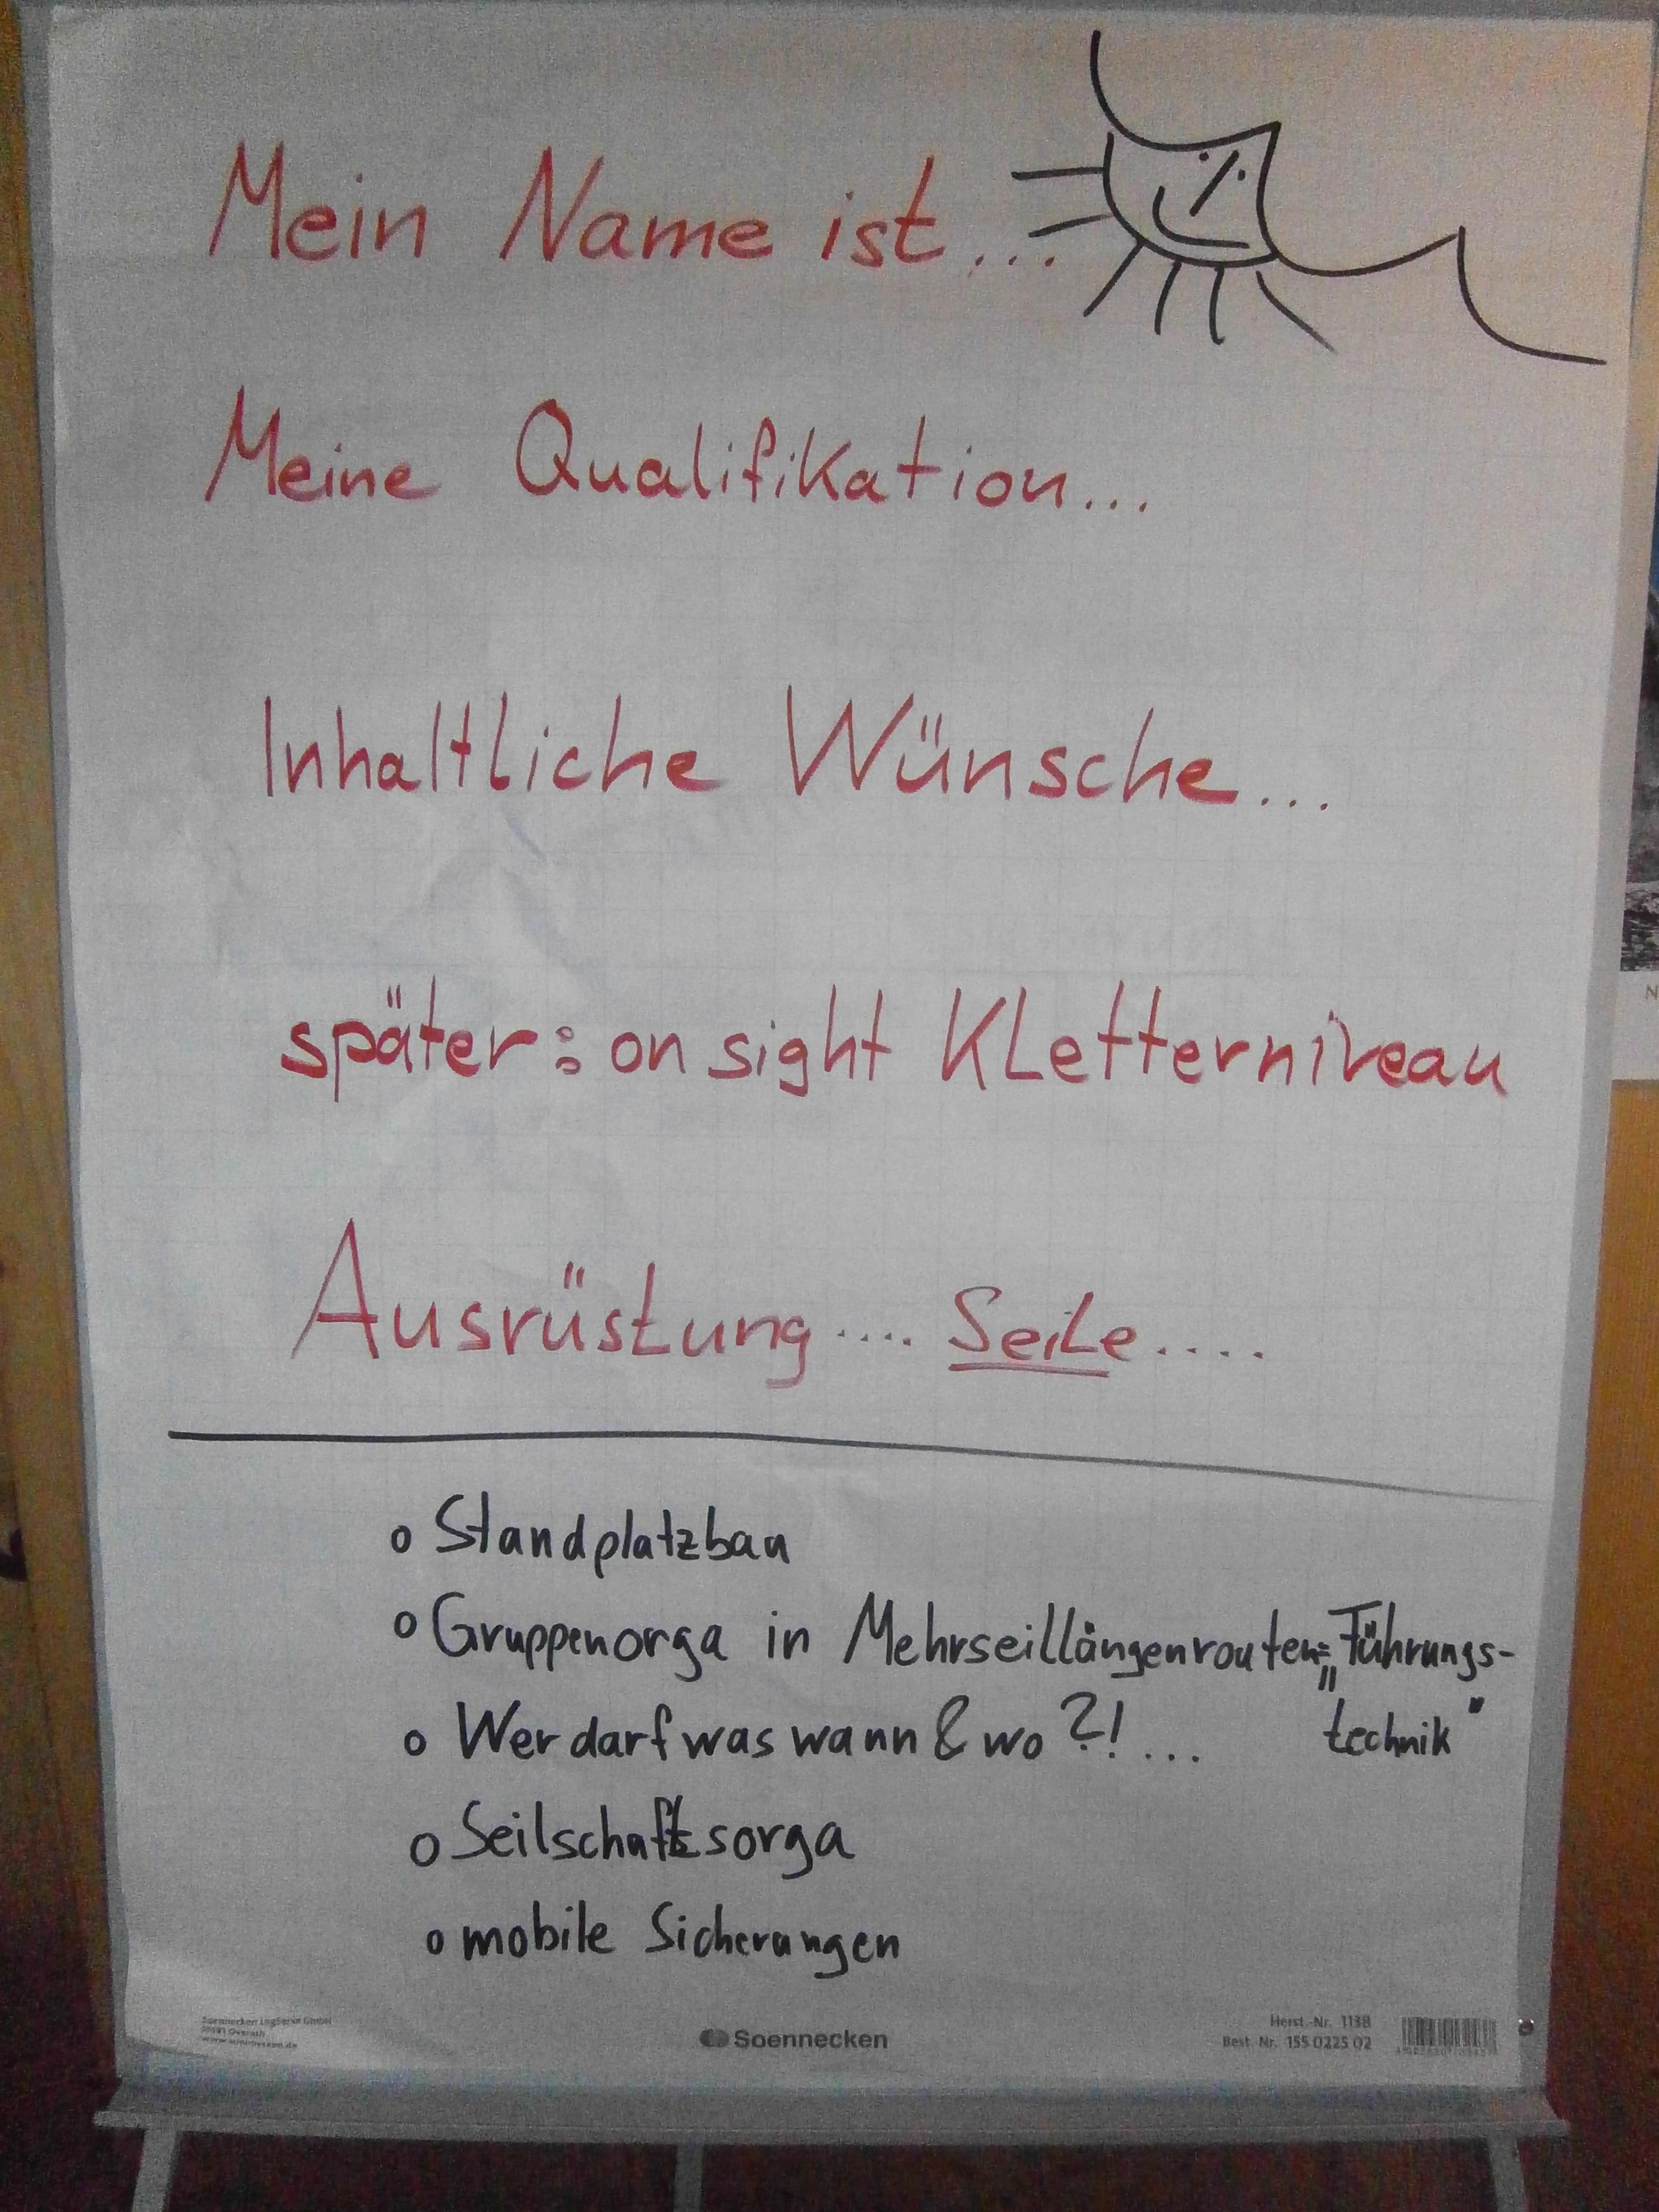 Mein Name ist...
Meine Qualifikation...
Inhaltliche Wünsche...
später: on sight Kletterniveau
Ausrüstung.... Seile....
o Standplatzbau
o Gruppenorga in Mehrseillängenrouten= „Führungs-
technik"
o Wer darf was wann & wo ?!...
o Seilschaftsorga
o mobile Sicherungen
Soennecken
Herst.-Nr. 1138
Best. Nr. 155 0225 02